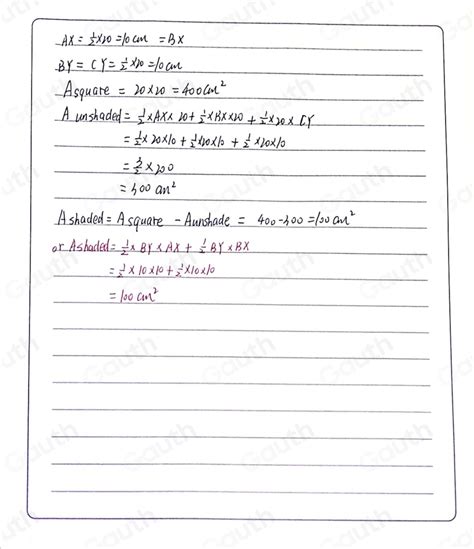 AX = ½×20 = 10cm = BX
BY = CY = ½×20 = 10cm
Asquare = 20×20 = 400cm²
A unshaded = ½×AX×20 + ½×BX×20 + ½×20×CY
= ½×20×10 + ½×20×10 + ½×20×10
= 3/2 × 200
= 300 cm²
A shaded = A square - A unshade = 400-300 = 100cm²
or A shaded = ½×BY×AX + ½BY×BX
= ½×10×10 + ½×10×10
= 100 cm²
Gauth